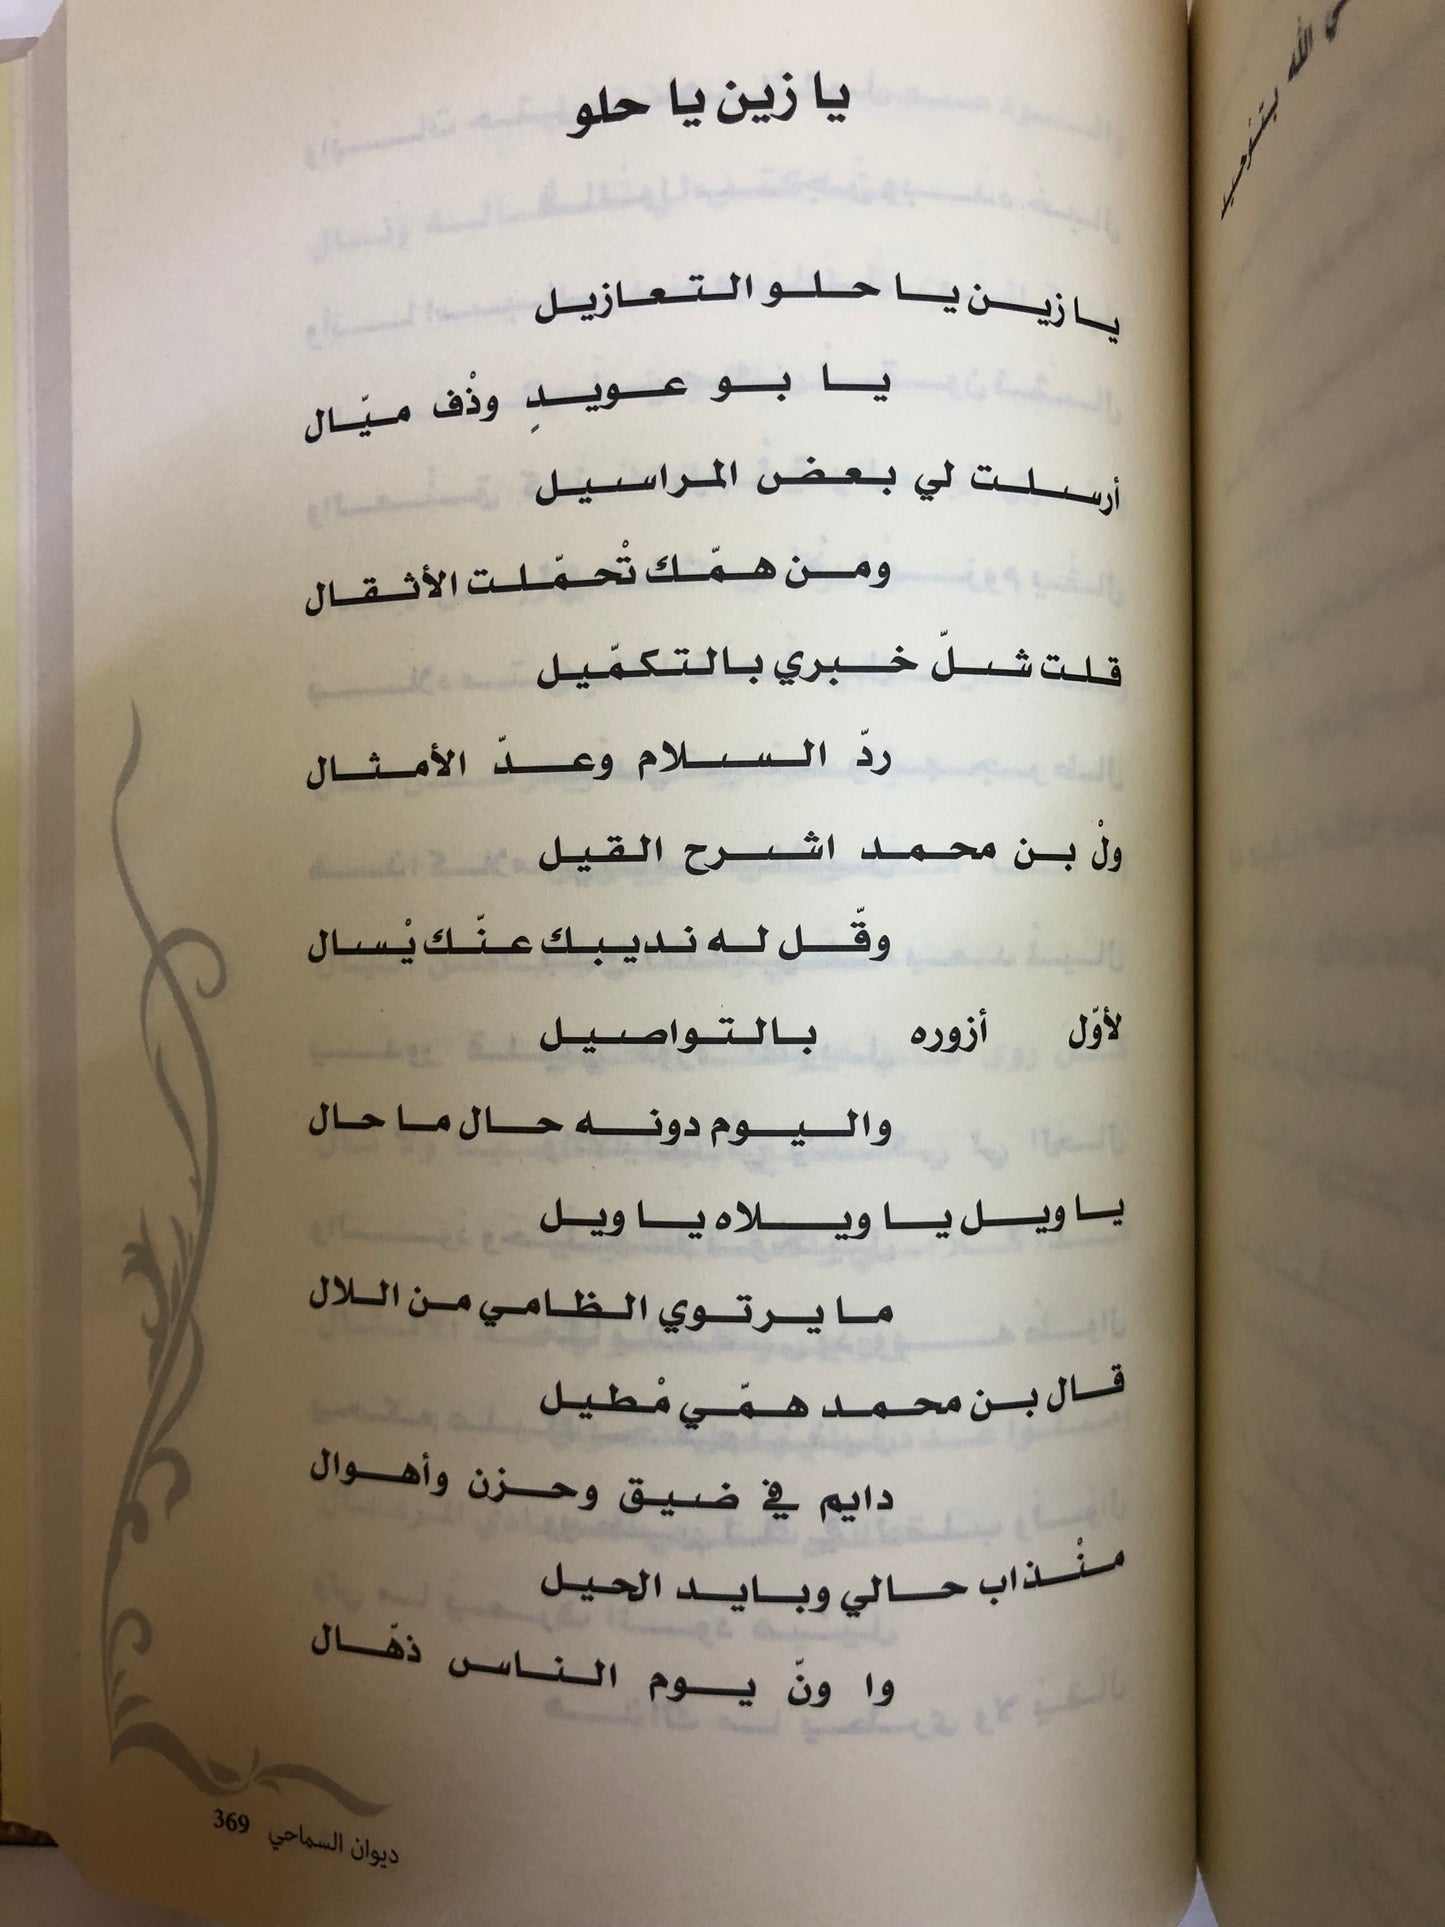 يا زين يا حلو
يا زين يا حلو التعازيل
يا بو عويدِ وذْف ميّال
أرسلت لي بعض المراسيل
ومن همّك تْحمّلت الأثقال
قلت شلّ خبري بالتكمّيل
ردّ السلام وعدّ الأمثال
ولْ بن محمد اشرح القيل
وقّل له نديبك عنّك يْسال
لأوّل أزوره بالتواصيل
واليوم دونه حال ما حال
يا ويل يا ويلاه يا ويل
ما يرتوي الظامي من اللال
قال بن محمد همّي مْطيل
دايم في ضيق وحزن وأهوال
منْذاب حالي وبايد الحيل
وا ونّ يوم الناس ذهّال
ديوان السماحي 369